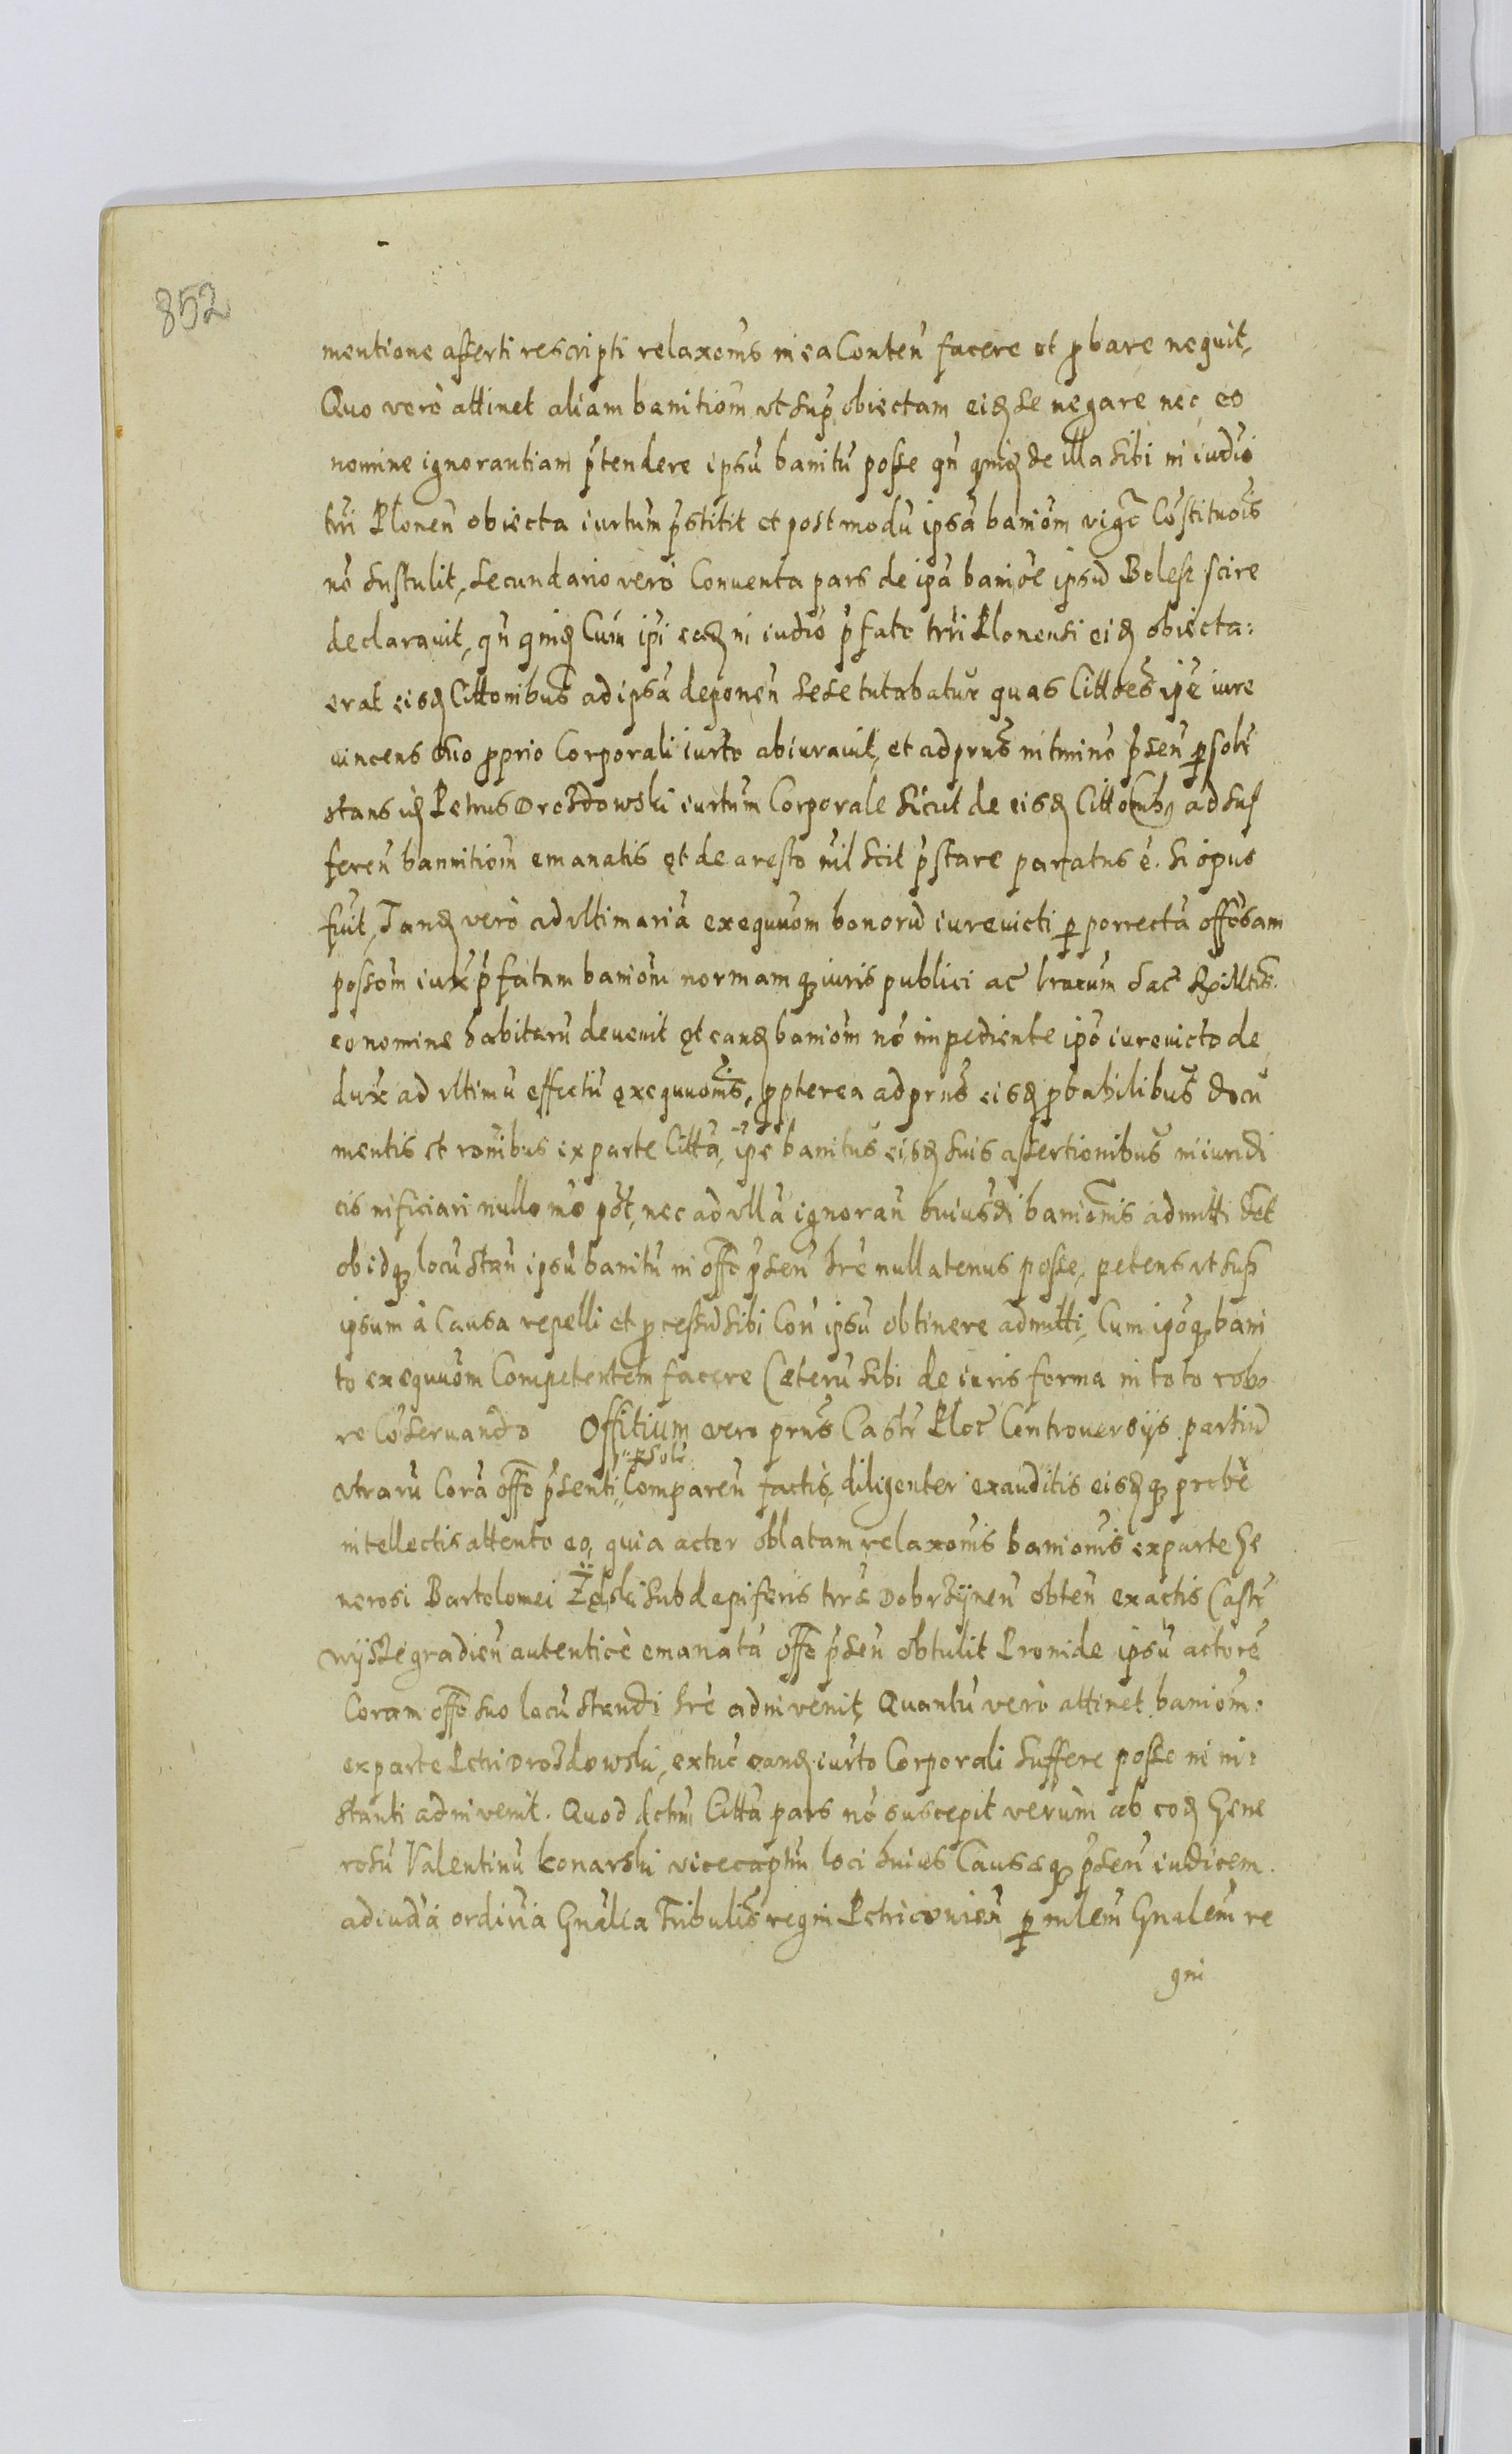 852
mentione asserti rescripti relaxoms in ea Conten facere et pbare nequit,
Quo vero attinet aliam banitiom ut sup obiectam eid se negare nec eo
nomine ignorantiam ptendere ipsu banitu posse qn qmid de illa sibi in iudio
trii Plonen obiecta iurtum pstitit et post modu ipsa baniom vig Costituois
no sustulit, secundario vero Conventa pars de ipa banioe ipsu Bolesz scire
declaravit, qn qmid Cum ipi ead in iudio pfato trii Plonensi eid obiecta:
erat eisd Cittonibus ad ipsa deponen sese tutabatur quas Cittoes ipe iure
vincens suo pprio Corporali iurto abiuravit, et ad prns in tmino psen psolr
stans id Petrus Drozdowski iurtum Corporale sicut de eisd Cittomb9 ad suf
feren bannitiom emanatis et de aresto nil scit pstare paratus e. si opus
fuit, Tand vero ad ultimaria exequuom bonoru iurevicti p porrecta offosam
possom iux pfatam baniom normamq iuris publici ac lrarum Sac Rx Mtis.
eo nomine habitaru devenit et eand baniom no impediente ipo iurevicto de
dux ad ultimu effectu exequuoms, ppterea ad prns eisd pbabilibus docu
mentis et ronibus ex parte Citta, ipe banitus eisd suis assertionibus in iuridi
cis inficiari nullo mo pot, nec ad ulla ignoran huiusdi banionis admitti det
ob idq locu stan ipsu banitu in offo psen hre nullatenus posse, petens ut sup
ipsum a Causa repelli et pcessu sibi Con ipsu obtinere admitti, Cum ipoq bani
to exequuom Competentem facere Caeteru sibi de iuris forma in toto robo
re Coservando Offitium vero prns Castr Ploc Controversijs partiu
psolr
utraru Cora offo psenti Comparen factis, diligenter exauditis eisdq probe
intellectis attento eo, quia actor oblatam relaxonis banionis ex parte Ge
nerosi Bartolomei Zęski Subdapiferis trrae Dobrzijnen obten ex actis Castr
Wijszegradien autentice emanata offo psen obtulit Proinde ipsu actore
Coram offo suo locu standi hre adinvenit, Quantu vero attinet baniom.
ex parte Petri Drozdowski, extuc eand iurto Corporali suffere posse in in:
stanti adinvenit. Quod dctm Citta pars no suscepit verum ab eod Gene
rosu Valentinu konarski vicecaptm loci huius Causaeq psen iudicem.
ad iuda ordiria Gnalia Tribulis regni Petricovien p mlem Gnalem re
gni